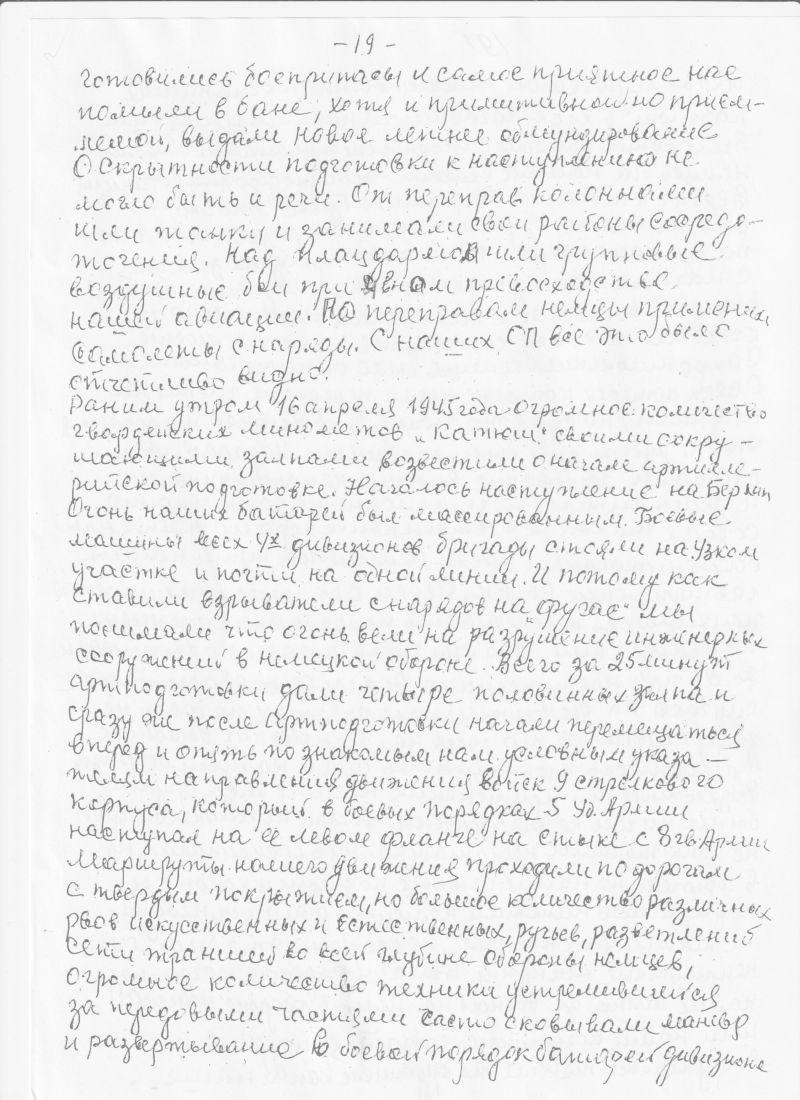 -19-
готовились боеприпасы и самое приятное нас
помыли в бане, хотя и примитивной но прием-
лемой, выдали новое летнее обмундирование
О скрытности подготовки к наступлению не
могло быть и речи. От переправ колоннами
шли танки и занимали свои районы сосредо-
точения. Над плацдармом шли групповые
воздушные бои при явном превосходстве
нашей авиации. По переправам немцы применяли
самолеты снаряды. С наших ОП все это было
отчетливо видно.
Раним утром 16 апреля 1945 года огромное количество
гвардейских минометов „Катюш" своими сокру-
шающими залпами возвестили о начале артилле-
рийской подготовке. Началось наступление на Берлин
Огонь наших батарей был массированным. Боевые
машины всех 4х дивизионов бригады стояли на узком
участке и почти на одной линии. И потому как
ставили взрыватели снарядов на „фугас" мы
понимали что огонь вели на разрушение инженерных
сооружений в немецкой обороне. Всего за 25 минут
артподготовки дали четыре половинных залпа и
сразу же после артподготовки начали перемещаться
вперед и опять по знакомым нам условным указа-
телям направления движения войск 9 стрелкового
корпуса, который в боевых порядках 5 Уд. Армии
наступал на ее левом фланге на стыке с 8 гв. Армии
Маршруты нашего движения проходили по дорогам
с твердым покрытием, но большое количество различных
рвов искусственных и естественных, ручьев, разветлений
сети траншей во всей глубине обороны немцев,
огромное количество техники устремившейся
за передовыми частями часто сковывали маневр
и развертывание в боевой порядок батарей дивизиона